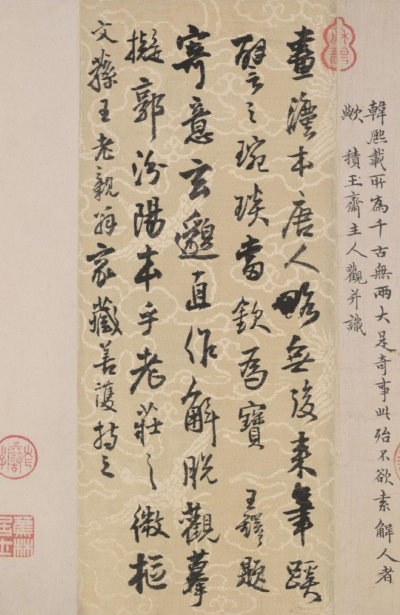 韓熙載所為千古無兩大是奇事此殆不欲索解人者
歟 積玉齋主人觀并識
畫灋本唐人略無後來筆蹊
譬之琬琰當欽為寶 王鐸題
寄意玄邈直作解脫觀摹
擬郭汾陽本乎老莊之微樞
文蓀王老親翁家藏善護持之